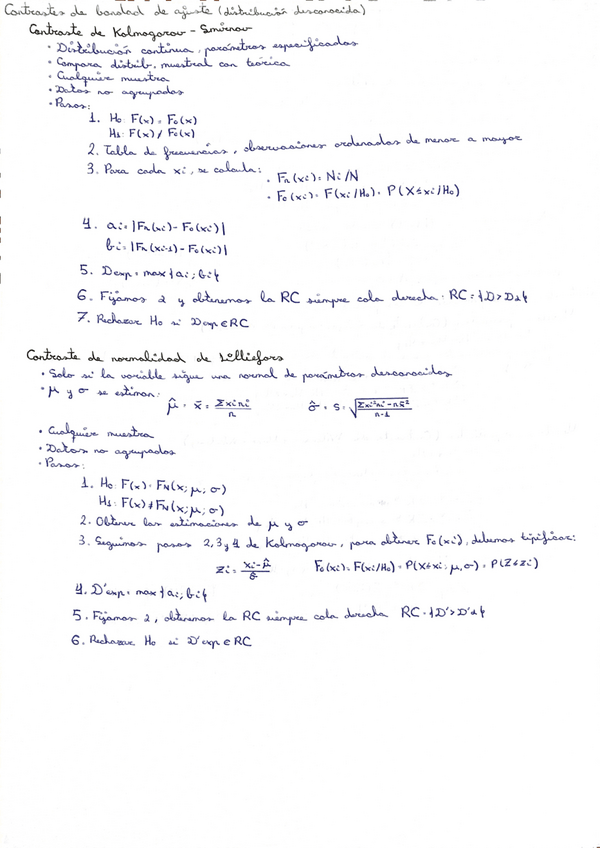 Contrastes de bondad de ajuste (distribución desconocida)
Contraste de Kolmogorov - Smirnov
• Distribución continua, parámetros especificados
• Compara distrib. muestral con teórica
• Cualquier muestra
• Datos no agrupados
• Pasos:
1. H₀: F(x) = F₀(x)
H₁: F(x) ≠ F₀(x)
2. Tabla de frecuencias, observaciones ordenadas de menor a mayor
3. Para cada xi, se calcula: • Fn(xi) = Ni/N
• F₀(xi) = F(xi/H₀) = P(X≤xi/H₀)
4. ai = |Fn(xi) - F₀(xi)|
bi = |Fn(xi-1) - F₀(xi)|
5. Dexp = max{ai; bi}
6. Fijamos α y obtenemos la RC siempre cola derecha: RC = {D > Dα}
7. Rechazar H₀ si Dexp ∈ RC
Contraste de normalidad de Lilliefors
• Solo si la variable sigue una normal de parámetros desconocidos
• μ y σ se estiman: μ̂ = x̄ = Σxini/n σ̂ = s = √((Σxi²ni - nx̄²)/(n-1))
• Cualquier muestra
• Datos no agrupados
• Pasos:
1. H₀: F(x) = FN(x; μ; σ)
H₁: F(x) ≠ FN(x; μ; σ)
2. Obtener las estimaciones de μ y σ
3. Seguimos pasos 2, 3 y 4 de Kolmogorov, para obtener F₀(xi), debemos tipificar:
zi = (xi - μ̂)/σ̂ F₀(xi) = F(xi/H₀) = P(X≤xi; μ, σ) = P(Z≤zi)
4. D'exp = max{ai; bi}
5. Fijamos α, obtenemos la RC siempre cola derecha RC = {D' > D'α}
6. Rechazar H₀ si D'exp ∈ RC